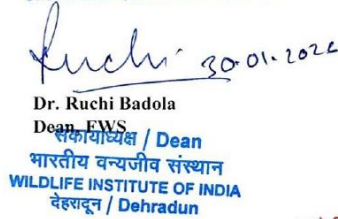 Ruchi 30.01.202
Dr. Ruchi Badola
Dean, FWS
संकायाध्यक्ष / Dean
भारतीय वन्यजीव संस्थान
WILDLIFE INSTITUTE OF INDIA
देहरादून / Dehradun